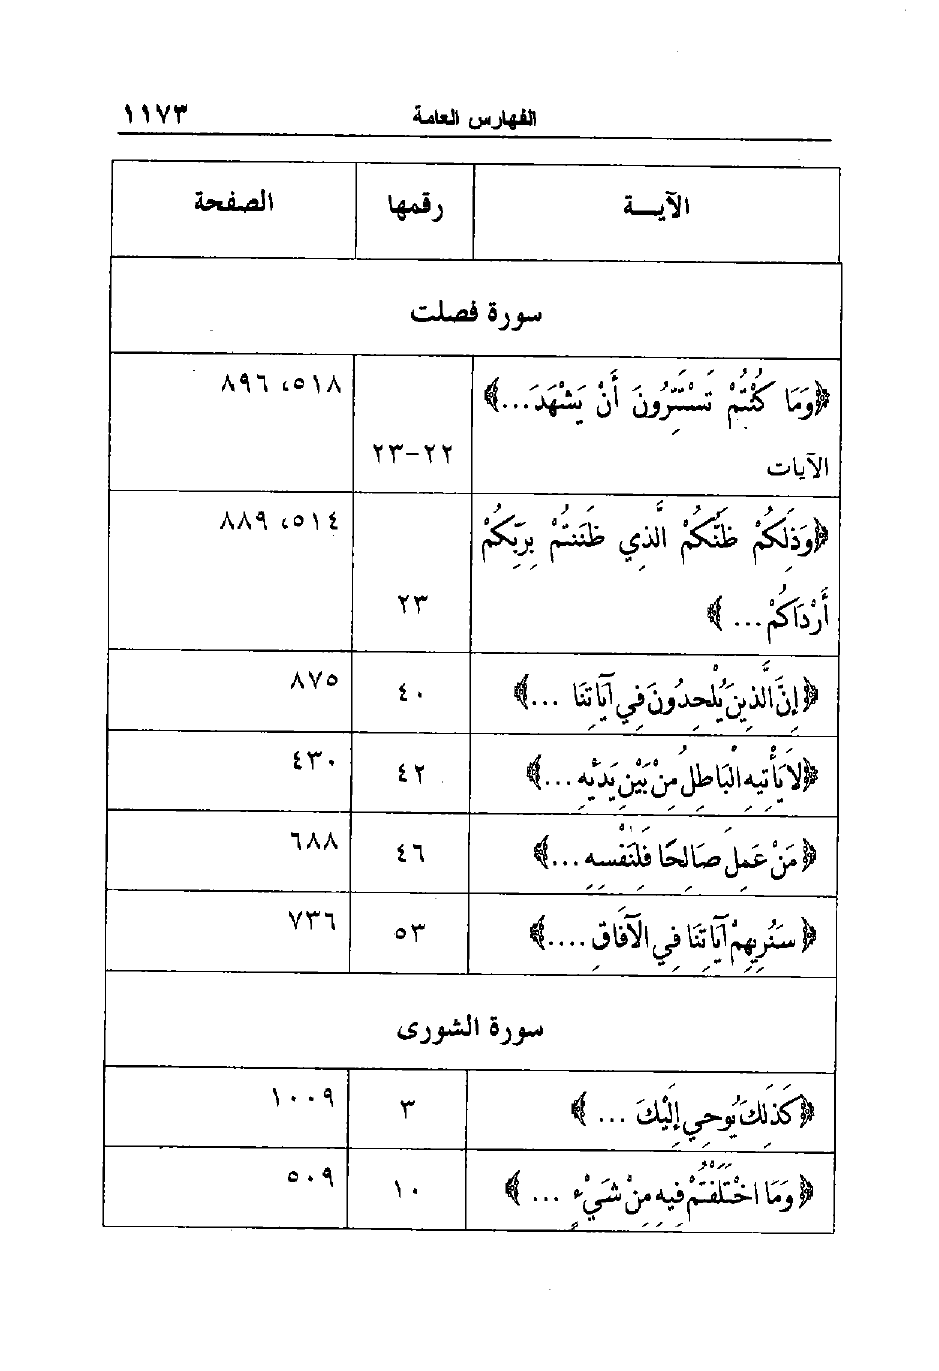 الفهارس العامة ١١٧٣
الآيــة رقمها الصفحة
سورة فصلت
﴿وَمَا كُنْتُمْ تَسْتَتِرُونَ أَنْ يَشْهَدَ...﴾ ٥١٨، ٨٩٦
الآيات ٢٢-٢٣
﴿وَذَلِكُمْ ظَنُّكُمْ الَّذِي ظَنَنتُمْ بِرَبِّكُمْ ٥١٤، ٨٨٩
أَرْدَاكُمْ... ﴾ ٢٣
﴿إِنَّ الَّذِينَ يُلْحِدُونَ فِي آيَاتِنَا ...﴾ ٤٠ ٨٧٥
﴿لاَ يَأْتِيهِ الْبَاطِلُ مِنْ بَيْنِ يَدَيْهِ ...﴾ ٤٢ ٤٣٠
﴿مَنْ عَمِلَ صَالِحًا فَلِنَفْسِهِ ...﴾ ٤٦ ٦٨٨
﴿سَنُرِيهِمْ آيَاتِنَا فِي الآفَاقِ ....﴾ ٥٣ ٧٣٦
سورة الشورى
﴿كَذَلِكَ يُوحِي إِلَيْكَ ... ﴾ ٣ ١٠٠٩
﴿وَمَا اخْتَلَفْتُمْ فِيهِ مِنْ شَيْءٍ ... ﴾ ١٠ ٥٠٩